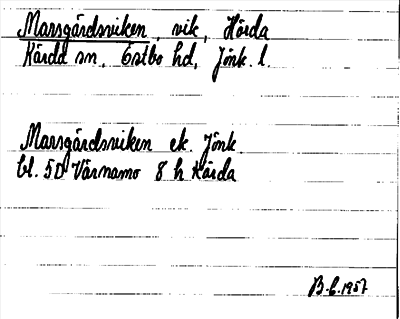 Marsgårdsviken, vik, Hörda
Kärda sn, Östbo hd, Jönk. l.
Marsgårdsviken ek. Jönk
bl. 5D Värnamo 8 h Kärda
B.C. 1957